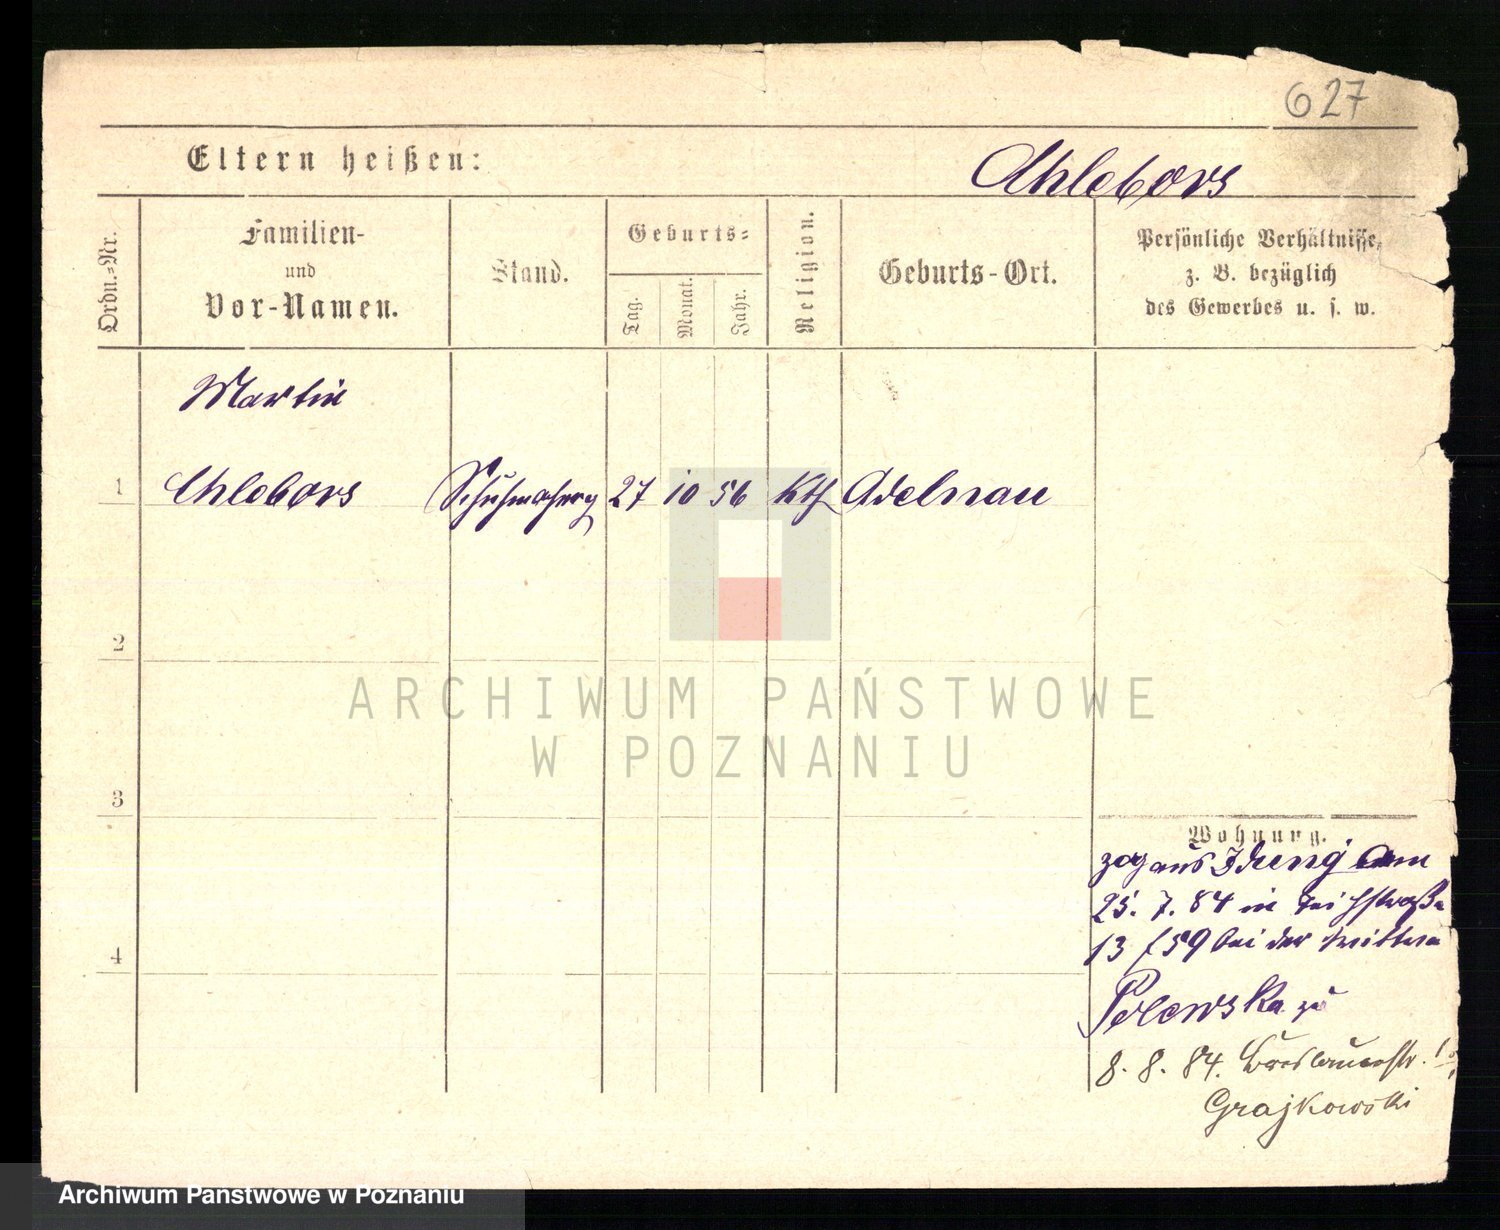 627
Eltern heißen:
Chlebors
Ordn.=Nr.
Familien-
und
Vor-Namen.
Stand.
Geburts=
Tag.
Monat.
Jahr.
Religion.
Geburts-Ort.
Persönliche Verhältnisse,
z. B. bezüglich
des Gewerbes u. s. w.
Martin
1 Chlebors Schuhmacherg 27 10 56 Kth Adelnau
2
ARCHIWUM PAŃSTWOWE
W POZNANIU
3
Wohnung.
zog aus am
25. 7. 84 in Teichstraße
4
13 / 59 bei der Wittwe
Polewska zu
8. 8. 84. Breslauerstr.
Grajkowski
Archiwum Panstwowe w Poznaniu